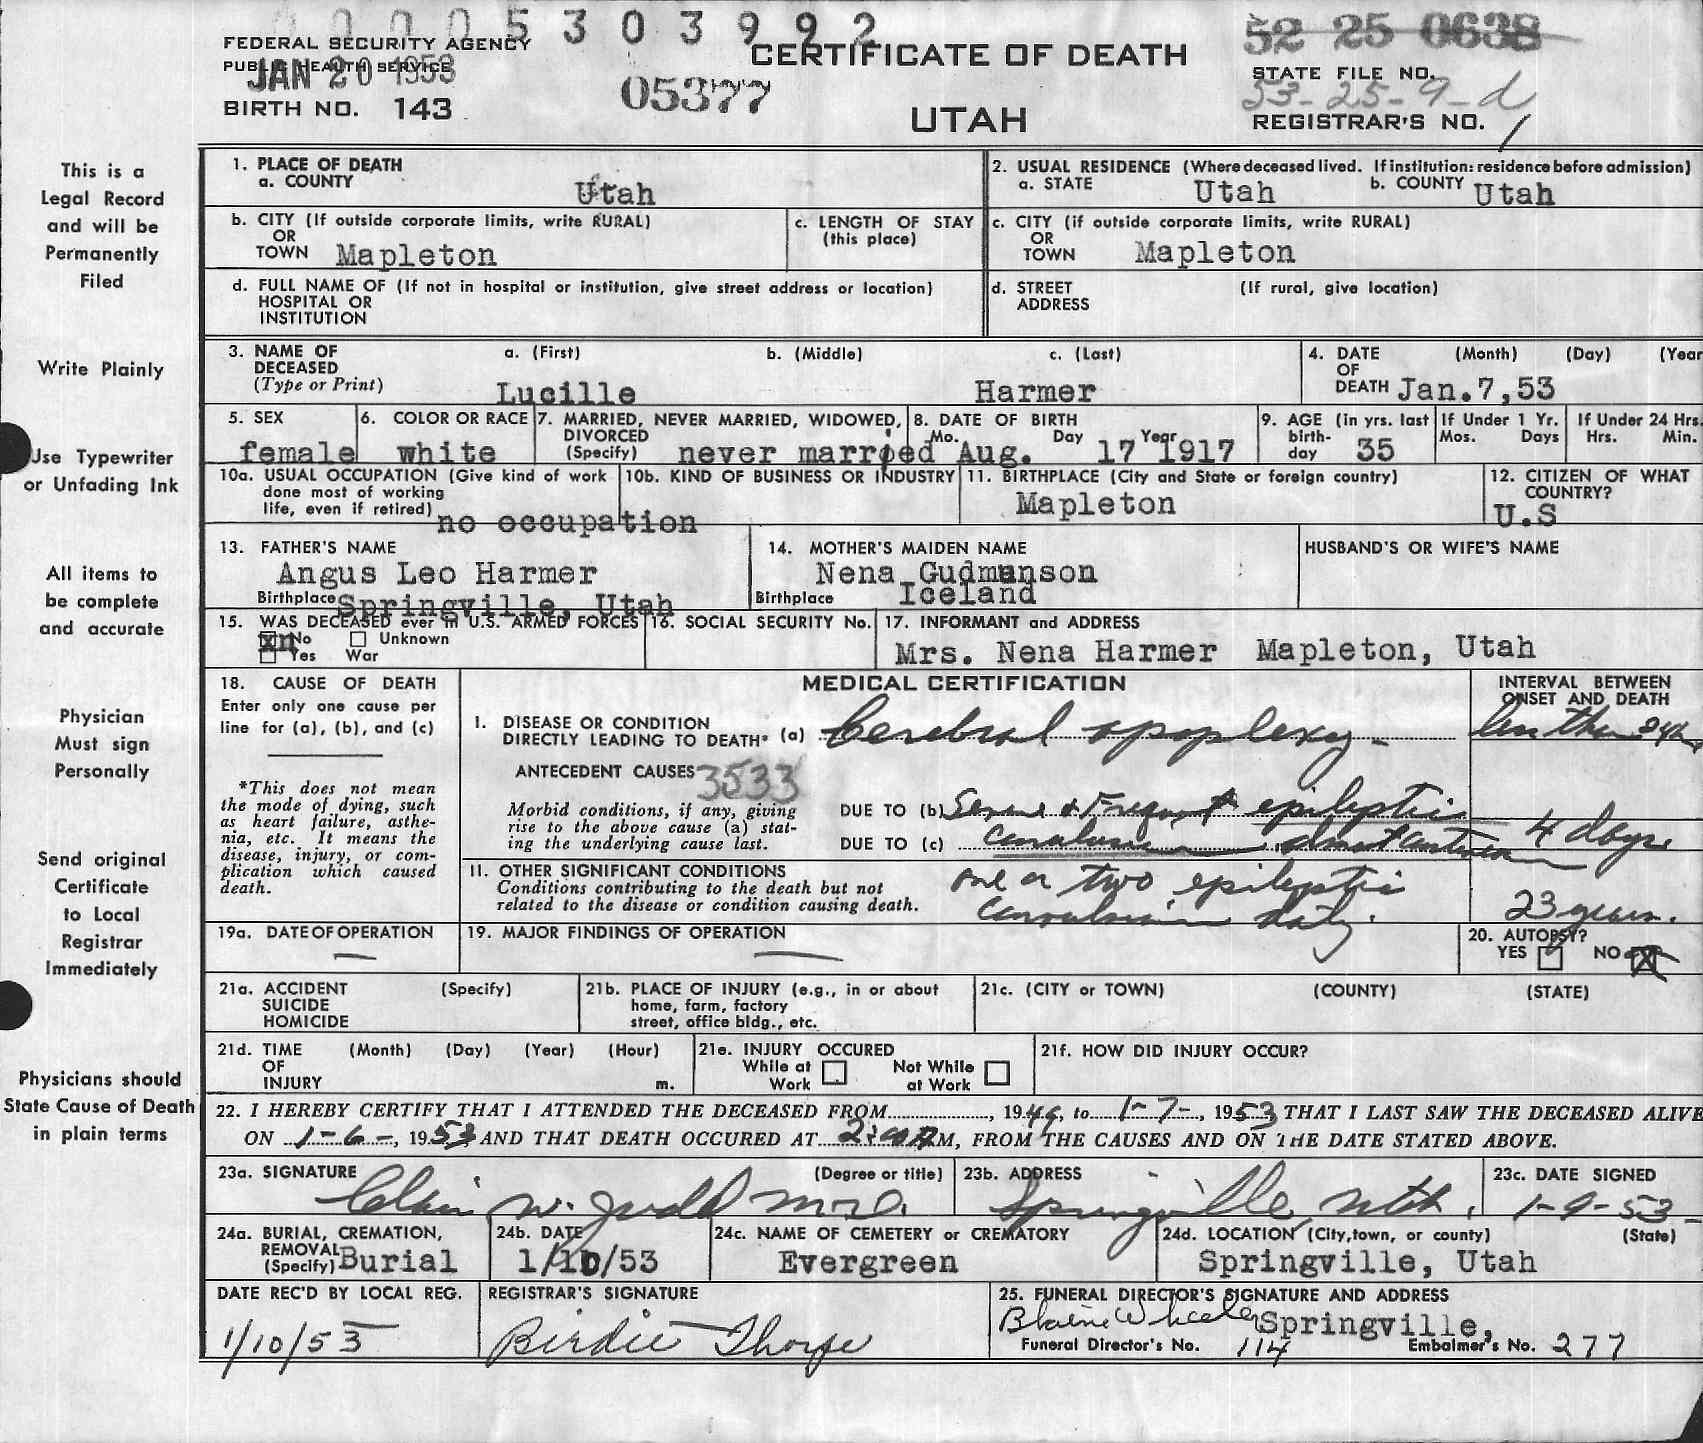 0005303992
FEDERAL SECURITY AGENCY
PUBLIC HEALTH SERVICE
JAN 20 1953
BIRTH NO. 143
05377
CERTIFICATE OF DEATH
UTAH
52 25 0638
STATE FILE NO.
53-25-9-d
REGISTRAR'S NO. 1
This is a
Legal Record
and will be
Permanently
Filed
Write Plainly
Use Typewriter
or Unfading Ink
All items to
be complete
and accurate
Physician
Must sign
Personally
Send original
Certificate
to Local
Registrar
Immediately
Physicians should
State Cause of Death
in plain terms
1. PLACE OF DEATH
a. COUNTY Utah
2. USUAL RESIDENCE (Where deceased lived. If institution: residence before admission)
a. STATE Utah b. COUNTY Utah
b. CITY (If outside corporate limits, write RURAL)
OR
TOWN Mapleton
c. LENGTH OF STAY
(this place)
c. CITY (if outside corporate limits, write RURAL)
OR
TOWN Mapleton
d. FULL NAME OF (If not in hospital or institution, give street address or location)
HOSPITAL OR
INSTITUTION
d. STREET (If rural, give location)
ADDRESS
3. NAME OF a. (First) b. (Middle) c. (Last)
DECEASED
(Type or Print) Lucille Harmer
4. DATE (Month) (Day) (Year
OF
DEATH Jan.7,53
5. SEX
female
6. COLOR OR RACE
white
7. MARRIED, NEVER MARRIED, WIDOWED,
DIVORCED
(Specify) never married
8. DATE OF BIRTH
Mo. Day Year
Aug. 17 1917
9. AGE (in yrs. last
birth-
day 35
If Under 1 Yr.
Mos. Days
If Under 24 Hrs.
Hrs. Min.
10a. USUAL OCCUPATION (Give kind of work
done most of working
life, even if retired) no occupation
10b. KIND OF BUSINESS OR INDUSTRY
11. BIRTHPLACE (City and State or foreign country)
Mapleton
12. CITIZEN OF WHAT
COUNTRY?
U.S
13. FATHER'S NAME
Angus Leo Harmer
Birthplace Springville, Utah
14. MOTHER'S MAIDEN NAME
Nena Gudmanson
Birthplace Iceland
HUSBAND'S OR WIFE'S NAME
15. WAS DECEASED ever in U.S. ARMED FORCES
No Unknown
Yes War
16. SOCIAL SECURITY No.
17. INFORMANT and ADDRESS
Mrs. Nena Harmer Mapleton, Utah
18. CAUSE OF DEATH
Enter only one cause per
line for (a), (b), and (c)
*This does not mean
the mode of dying, such
as heart failure, asthe-
nia, etc. It means the
disease, injury, or com-
plication which caused
death.
MEDICAL CERTIFICATION
INTERVAL BETWEEN
ONSET AND DEATH
I. DISEASE OR CONDITION
DIRECTLY LEADING TO DEATH* (a) Cerebral apoplexy -
less than
ANTECEDENT CAUSES 3533
Morbid conditions, if any, giving
rise to the above cause (a) stat-
ing the underlying cause last.
DUE TO (b) Severe & Frequent epileptic
DUE TO (c) convulsions almost
4 days
11. OTHER SIGNIFICANT CONDITIONS
Conditions contributing to the death but not
related to the disease or condition causing death.
one or two epileptic
convulsions daily.
23 years.
19a. DATE OF OPERATION
—
19. MAJOR FINDINGS OF OPERATION
—
20. AUTOPSY?
YES NO X
21a. ACCIDENT (Specify)
SUICIDE
HOMICIDE
21b. PLACE OF INJURY (e.g., in or about
home, farm, factory
street, office bldg., etc.
21c. (CITY or TOWN) (COUNTY) (STATE)
21d. TIME (Month) (Day) (Year) (Hour)
OF
INJURY m.
21e. INJURY OCCURED
While at Not While
Work at Work
21f. HOW DID INJURY OCCUR?
22. I HEREBY CERTIFY THAT I ATTENDED THE DECEASED FROM , 1949, to 1-7-, 1953 THAT I LAST SAW THE DECEASED ALIVE
ON 1-6-, 1953 AND THAT DEATH OCCURED AT M, FROM THE CAUSES AND ON THE DATE STATED ABOVE.
23a. SIGNATURE (Degree or title)
Clair W. Judd M.D.
23b. ADDRESS
Springville Utah.
23c. DATE SIGNED
1-9-53-
24a. BURIAL, CREMATION,
REMOVAL
(Specify) Burial
24b. DATE
1/10/53
24c. NAME OF CEMETERY or CREMATORY
Evergreen
24d. LOCATION (City,town, or county)
(State)
Springville, Utah
DATE REC'D BY LOCAL REG.
1/10/53
REGISTRAR'S SIGNATURE
Birdie Thorpe
25. FUNERAL DIRECTOR'S SIGNATURE AND ADDRESS
Blaine Wheeler Springville,
Funeral Director's No. 114 Embalmer's No. 277